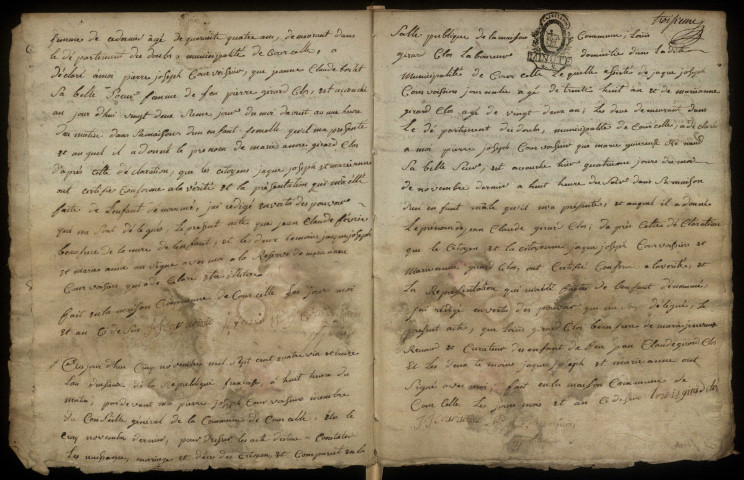 femme de cedernier âgé de quarante quatre ans, demeurant dans
le département du doubs, municipalité de Courcelle, a
déclaré a moi pierre joseph Courvoisier, que jeanne Claude
Sa belle Soeur femme de feu pierre girard Clos, est acouchée
au jour d'hui vingt deux du moi de a une heure
du matin dans Samaison d'un enfant femelle qu'il ma présenté
et auquel il a donné le prenom de marie anne girard Clos
d'après cette déclaration, que les citoyens jaque joseph et marieanne
ont certifié Conforme ala vérité et la présentation qui ma été
faite de l'enfant dénommé, j'ai rédigé en vertu des pouvoirs
qui me sont délégués, le présent acte que jean Claude
beaufrere de la mere de l'enfant, et les deux temoins jaque joseph
et marie anne on Signé avec moi a la Réserve de marie anne
Courvoisier qui a déclaré être illitérée
fait en la maison Commune de Courcelle Les jour moi
et an Ci dessus
Cejourd'hui Cinq novembre mil Sept cent quatre vin et treize
l'an deuxieme de la République francaise, à huit heures du
matin, pardevant moi pierre joseph Courvoisier membre
du Conseille général de la Commune de Courcelle élu le
cinq novembre dernier, pour dresser les acte destiné a Constater
Les naissance, mariage et décès des Citoyens, est Comparut en la
Salle publique de la maison Commune, Louis
girard Clos laboureur domicilié dans ladite
Municipalité de Courcelle Lequelle assisté de jaque joseph
Courvoisier journalier âgé de trente huit ans et de marianne
girard Clos agé de vingt deux ans, les deux demeurant dans
Le département du doubs, municipalité de Courcelle, a déclaré
a moi pierre joseph Courvoisier que marie
Sa belle Soeur, est acouchée hier quatrieme jour du moi
de novembre dernier a huit heure du Soir dans Sa maison
d'un enfant mâle qu'il m'a présenté, et auquel il a donné
Le prenom de jean Claude girard Clos, da près Cette déclaration
que le Citoyen et la citoyenne jaque joseph Courvoisier et
Marianne girard Clos, ont Certifié Conforme a la vérité, et
La Représentation qui m'a été faite de l'enfant dénommé
j'ai rédigé en vertu des pouvoir qui me délégué, le
présent acte, que Louis girard Clos beaufrere de marie
Renaud et Curateur des enfant de feu jean Claude girard Clos
Et Les deux temoins jaque joseph et marie anne ont
Signé avec moi, fait en la maison Commune de
Courcelle Les jour mois et an Ci dessus Louis girard clos